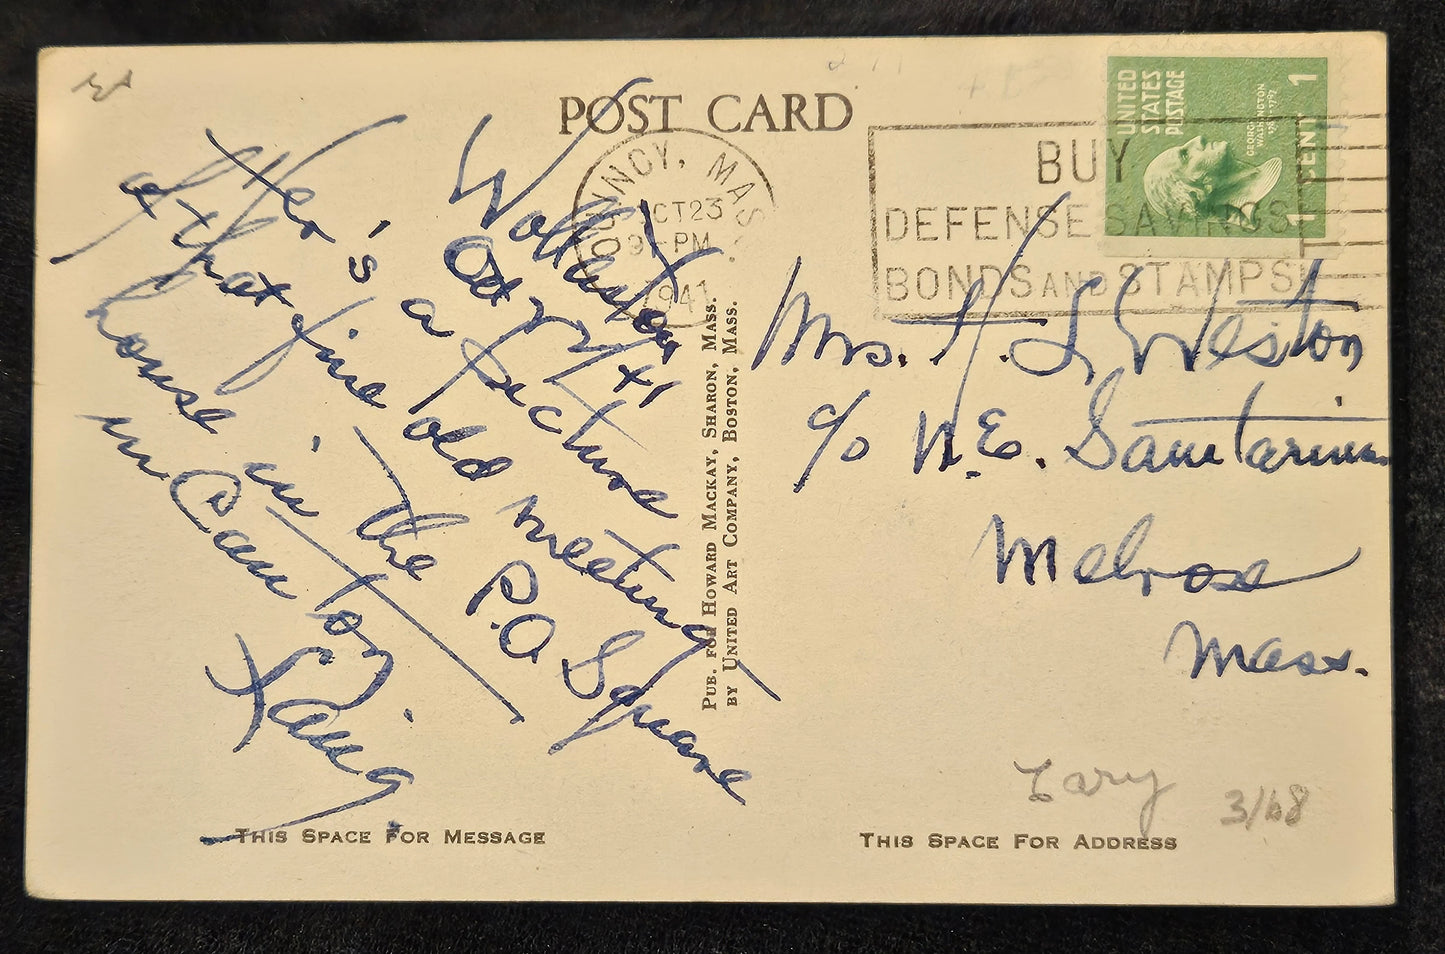 POST CARD
Wollaston
Oct 22/41
Her's a picture
of that fine old meeting
house in the P.O. Square
in Canton
QUINCY, MASS.
OCT 23
9-PM
1941
BUY
DEFENSE SAVINGS
BONDS AND STAMPS
UNITED
STATES
POSTAGE
GEORGE
WASHINGTON
1789-1797
1 CENT 1
Mrs. H. L. Weston
c/o N.E. Sanitarium
Melrose
Mass.
PUB. FOR HOWARD MACKAY, SHARON, MASS.
BY UNITED ART COMPANY, BOSTON, MASS.
3/68
THIS SPACE FOR MESSAGE
THIS SPACE FOR ADDRESS